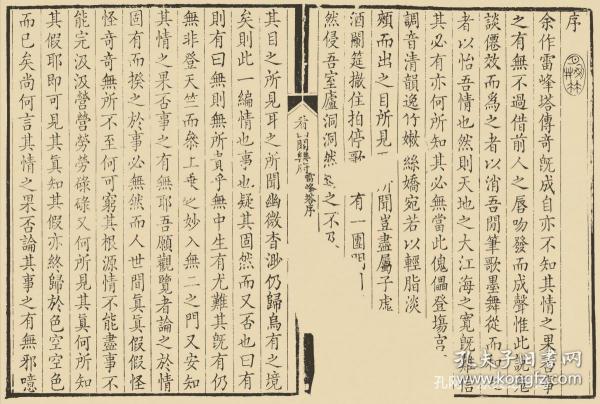 序
余作雷峰塔傳奇旣成自亦不知其情之果否事
之有無不過借前人之唇吻發而成聲惟此説鬼
談僊效而爲之者以消吾閒筆歌墨舞從而和之
者以怡吾情也然則天地之大江海之寬旣難
其必有亦何所知其必無當此傀儡登塲宮
調音清韻逸竹嫩絲嬌宛若以輕脂淡
顔而出之目所見 所聞豈盡屬子虛
酒闌筵撤住拍停歌 有一團
然侵吾室廬洞洞然 之不及
看 閣樂府 雷峰塔序
其目之所見耳之所聞幽微杳渺仍歸烏有之境
矣則此一編情也事也疑其固然而又否也曰有
則有曰無則無所貴乎無中生有尤難其旣有仍
無非登天竺而叅上乗之妙入無二之門又安知
其情之果否事之有無耶吾願觀覽者論之於情
固有而揆之於事必無然而人世間眞眞假假怪
怪奇奇無所不至何可窮其根源情不能盡事不
能完汲汲營營勞勞碌碌又何所見其眞何所知
其假耶即可見其眞知其假亦終歸於色空空色
而已矣尚何言其情之果否論其事之有無邪噫
孔夫子旧书网
kongfz.com